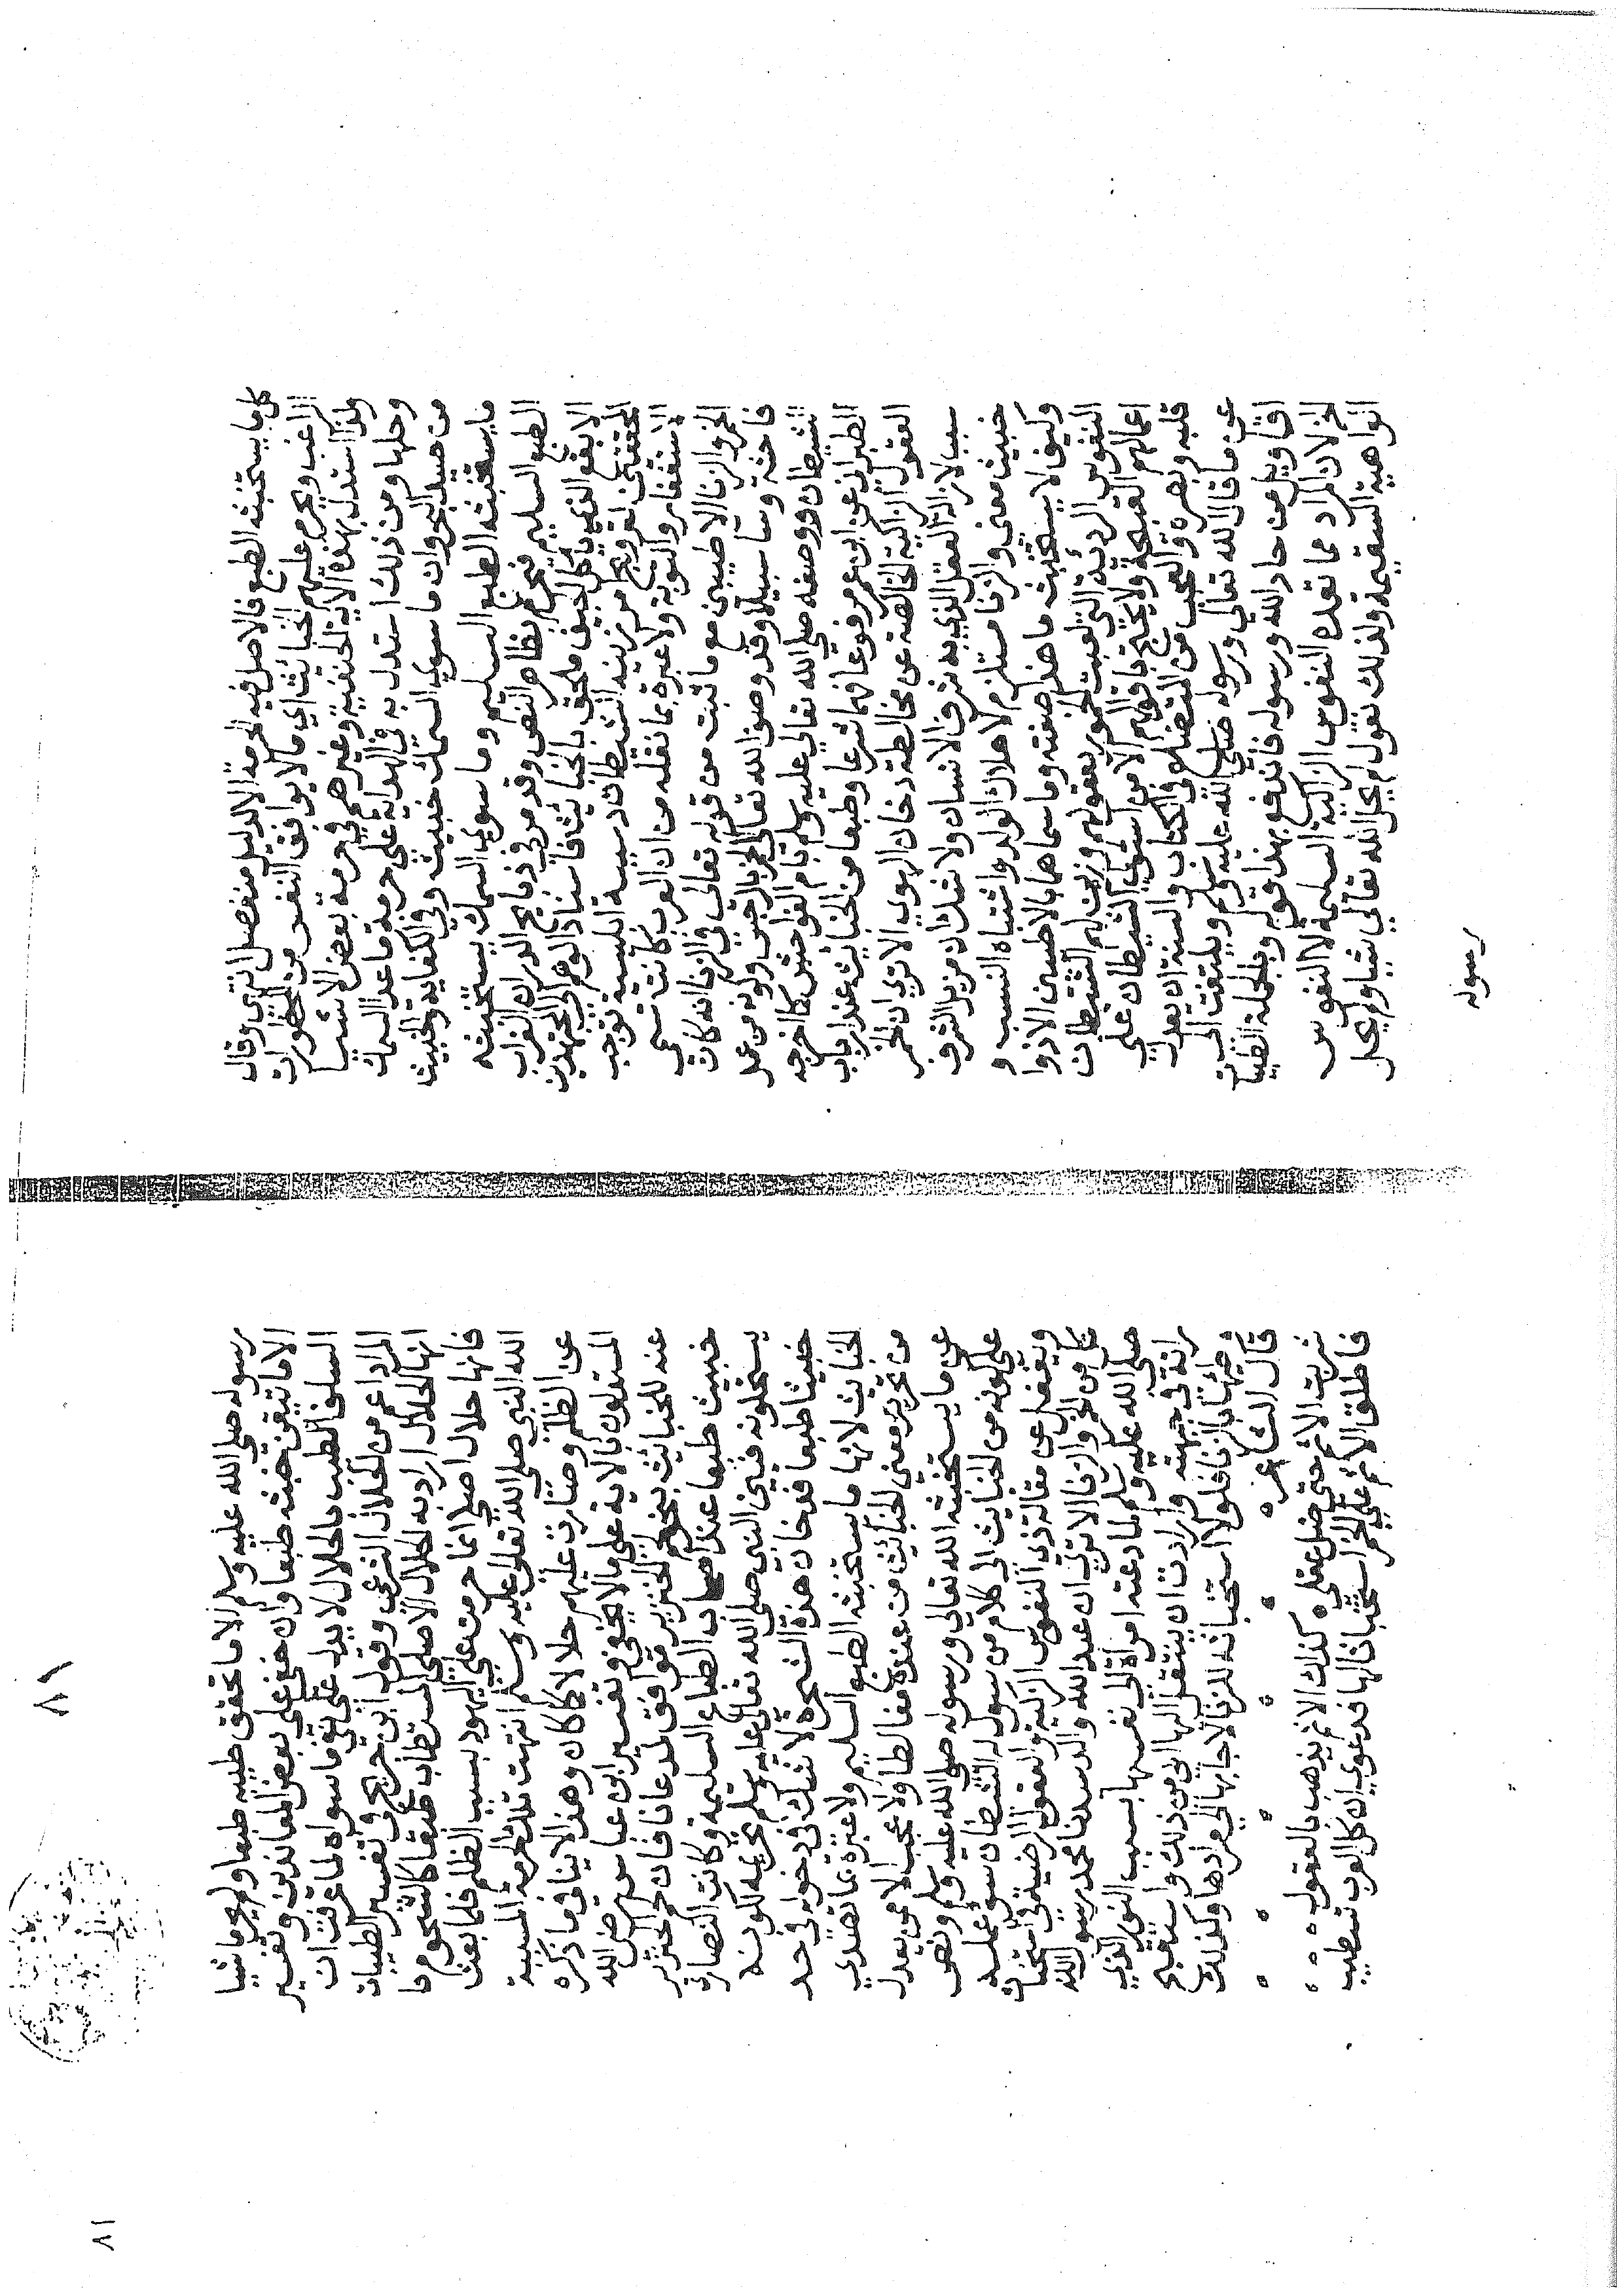 كل ما يستخبثه الطبع فالاصل فيه الحرمة الا لدليل منفصل انتهى وقال
الراغب ويحرم عليهم الخبائث اي ما لا يوافق النفس من المحظورات
ولذا استدل بهذه الاية الحنفية وغيرهم في حرمة بعض الاشيا
وحلها ومن ذلك استدل به في الهداية على حرمة ما عدا السمك
من صيد البحر وان ما سوى السمك خبيث وفي الكفاية والخبيث
ما يستخبثه الطبع السليم وما سوى السمك يستخبثه
الطبع السليم فيحرم بظاهر النص وقد مر في ذبايح الدرر ان الغراب
الابقع الذي ياكل الجيف ملحق بالخبائث فاسناد الوهم الى المجتهدين
المحققين لترويج امر زينه الشيطان دسيسة ابليسية توجب
الاستغفار والتوبة ولا عبرة بما نقله من ان العرب كانت تسمي
الخمر والزنا الاطيبين مع ما ثبت من قوله تعالى في الزنا انه كان
فاحشة وساء سبيلا وقد وصف الله تعالى الخمر بالرجس وكونه من عمل
الشيطان ووصفه صلى الله تعالى عليه وسلم بام الفواحش كما اخرجه
الطبراني عن ابن عمر مرفوعا فهما شرعا وطبعا من الخبايث عند ارباب
العقول الزاكية الخالصة عن مخالطة دخان الهوى الا ترى ان الخمر
سبب لازالة العقل الذي به شرف الانسان ولا شك ان مزيل الشرف
خبيث معنى والزنا مستلزم لاهلاك الولد واشتباه النسب و
وكيف لا يستخبث ما هذا صفته وما سماهما بالاطيبين الا ذوو
النفوس الردئية التي لعبت الخمور بعقولهم وزين لهم الشيطان
اعمالهم القبيحة ولا يحتج باقوالهم الا من استولى الشيطان على
قلبه وبصره والعجب من المتضلع في الكتاب والسنة ان يعدل
عن ما قال الله تعالى ورسوله صلى الله عليه وسلم ويلتفت الى
اقاويل من حاد الله ورسوله فاندفع بهذا قوله وبالجملة الطيبات
الخ لان المراد مما تقعده النفوس الزاكية السليمة لا النفوس
الواهية السقيمة ولذلك نقول لم يحل الله تعالى شيا ولم يحل
رسوله
٨١
رسوله صلى الله عليه وسلم الا ما تحقق طيبه طبعا ولم يحرما شيا
الا ما تيقن خبثه طبعا وان خفي على بعض المعاندين وتفسير
السلف الطيب بالحلال لا يدل على نفي ما سواه لما عرفت ان
المراد اعم من الحلال الشرعي وقول ابن جريج في تفسير الطيبات
انها الحلال اراد به الحلال الاصلي المستطاب طبعا كالشحوم
فانها حلال اصلي انما حرمت على اليهود بسبب الظلم فلما بعث
الله النبي صلى الله تعالى عليه وسلم انتهت تلك الحرمة المسببة
عن الظلم وصارت عليهم حلالا كما كان وهذا لا ينافي ما ذكره
المستدلون بالاية على ما لا يخفى وتفسير ابن عباس رضي الله
عنه للخبائث بلحم الخنزير موافق لمدعانا فان لحم الخنزير
خبيث طبعا عند اصحاب الطباع السليمة وكانت النصارى
يستحلونه فبين النبي صلى الله تعالى عليه وسلم تحريمه لكونه
خبيثا طبعا فدخان هذه الشجرة لا شك في دخوله في حد
الخبايث لانها ما يستخبثه الطبع السليم ولا عبرة بما تصدى
من تحرير معنى الخبائث من عنده مغالطا ولا عجب الا ممن يعدل
عن ما يستخبثه الله تعالى ورسوله صلى الله عليه وسلم ونص
على كونه من الخبايث الى كلام من سول له الشيطان سوء عمله
ويغفل عن مقالة ذوي النفوس الزكية والعقول المرضية في استخباث
كل من الخمر والزنا الا ترى ان عبد الله والد سيدنا محمد رسول الله
صلى الله عليه وسلم لما دعته امراة الى نفسها بسبب النور الذي
راته في جبهته وارادت ان ينتقل اليها ابى من ذلك واستقبح
خبثها بالزنا فلولا استخباثه للزنا لاجابها الى مرادها وكذلك
قال الشاعر
شربت الاثم حتى ضل عقلي كذاك الاثم يذهب بالعقول
فاطلق الاثم على الخمر استخباثا لها فدعوى ان كل العرب تستطيب
٨١